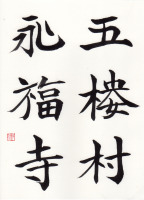 五楼村
永福寺